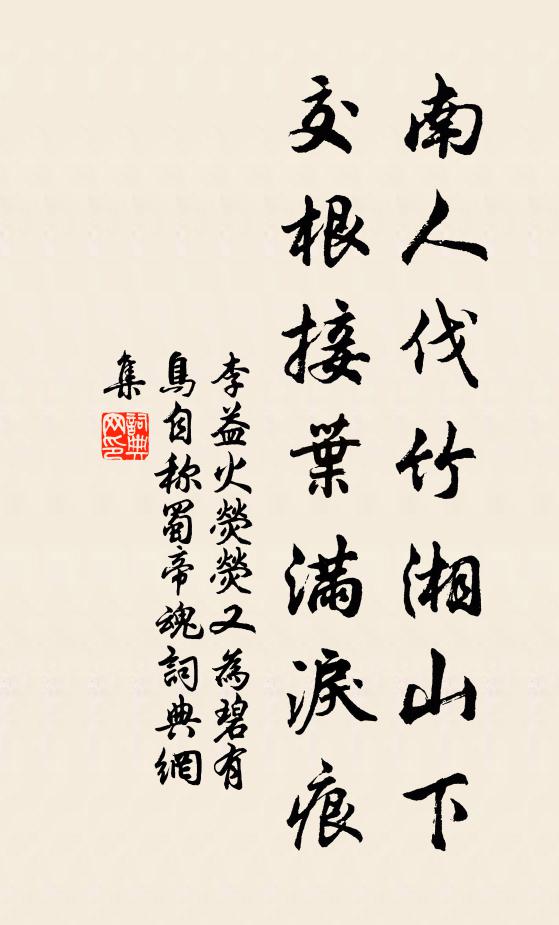 南人伐竹湘山下
交根接葉滿淚痕
李益火熒熒又為碧有
鳥自称蜀帝魂詞典網
集
詞典
网印